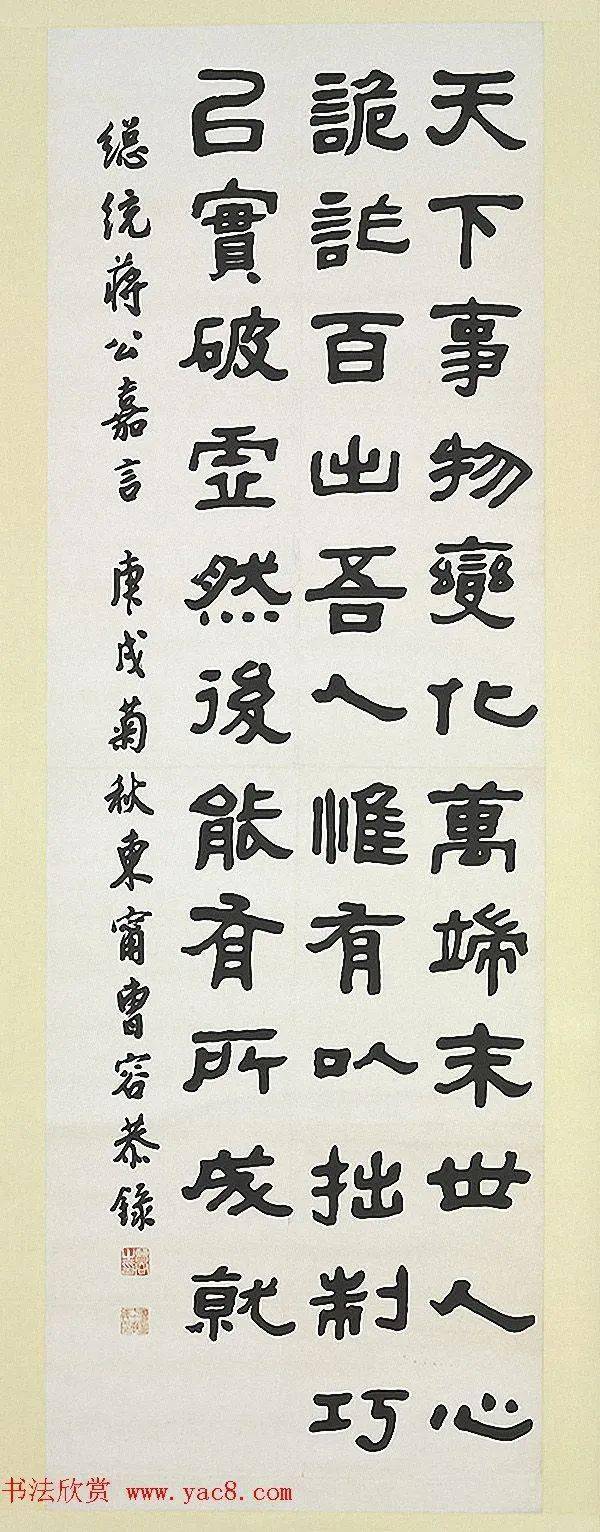 天下事物變化萬端末世人心
詭詐百出吾人惟有以拙制巧
以實破虛然後能有所成就
總統蔣公嘉言　庚戌菊秋東甯曹容恭錄
书法欣赏 www.yac8.com